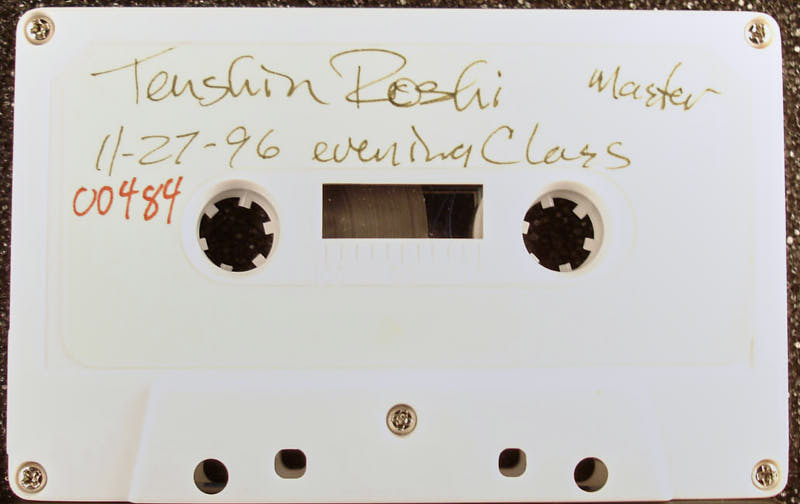 Tenshin Roshi Master
11-27-96 evening Class
00484